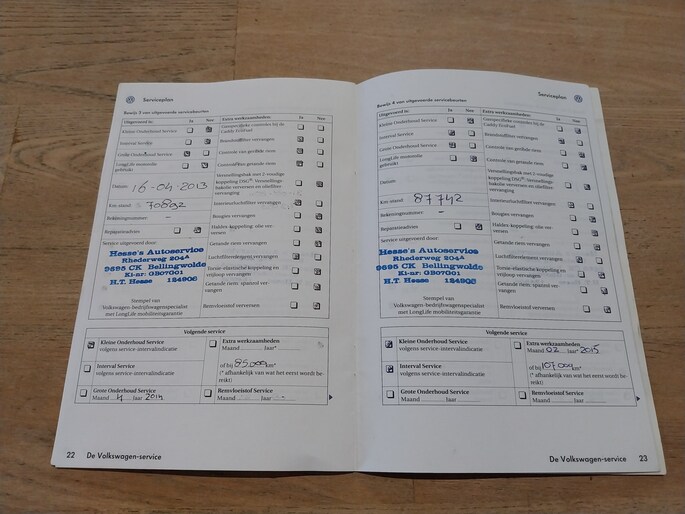 Serviceplan
Bewijs 3 van uitgevoerde servicebeurten
Uitgevoerd is: Ja Nee
Kleine Onderhoud Service
Interval Service
Grote Onderhoud Service
LongLife motorolie
gebruikt
Datum: 16-04-2013
Km-stand: 70892
Rekeningnummer: -
Reparatieadvies
Service uitgevoerd door:
Hesse's Autoservice
Rhederweg 204A
9695 CK Bellingwolde
Kl-nr: 0307001
H.T. Hesse 124906
Stempel van
Volkswagen-bedrijfswagenspecialist
met LongLife mobiliteitsgarantie
Extra werkzaamheden: Ja Nee
Gasspecifieke controles bij de
Caddy EcoFuel
Brandstoffilter vervangen
Controle van getande riem
Versnellingsbak met 2-voudige
koppeling DSG®: Versnellings-
bakolie verversen en oliefilter
vervanging
Interieurluchtfilter vervangen
Bougies vervangen
Haldex koppeling: olie ver-
versen
Getande riem vervangen
Luchtfilterelement vervangen
Torsie-elastische koppeling en
vrijloop vervangen
Getande riem: spanrol ver-
vangen
Remvloeistof verversen
Volgende service
Kleine Onderhoud Service
volgens service-intervalindicatie
Interval Service
volgens service-intervalindicatie
Grote Onderhoud Service
Maand 4 jaar 2014
Extra werkzaamheden
Maand jaar*
of bij 85.000 km*
(* afhankelijk van wat het eerst wordt be-
reikt)
Remvloeistof Service
Maand jaar -
22 De Volkswagen-service
Serviceplan
Bewijs 4 van uitgevoerde servicebeurten
Uitgevoerd is: Ja Nee
Kleine Onderhoud Service
Interval Service
Grote Onderhoud Service
LongLife motorolie
gebruikt
Datum:
Km-stand: 87742
Rekeningnummer: -
Reparatieadvies
Service uitgevoerd door:
Hesse's Autoservice
Rhederweg 204A
9695 CK Bellingwolde
Kl-nr: 0307001
H.T. Hesse 124906
Stempel van
Volkswagen-bedrijfswagenspecialist
met LongLife mobiliteitsgarantie
Extra werkzaamheden: Ja Nee
Gasspecifieke controles bij de
Caddy EcoFuel
Brandstoffilter vervangen
Controle van getande riem
Versnellingsbak met 2-voudige
koppeling DSG®: Versnellings-
bakolie verversen en oliefilter
vervanging
Interieurluchtfilter vervangen
Bougies vervangen
Haldex koppeling: olie ver-
versen
Getande riem vervangen
Luchtfilterelement vervangen
Torsie-elastische koppeling en
vrijloop vervangen
Getande riem: spanrol ver-
vangen
Remvloeistof verversen
Volgende service
Kleine Onderhoud Service
volgens service-intervalindicatie
Interval Service
volgens service-intervalindicatie
Grote Onderhoud Service
Maand jaar
Extra werkzaamheden
Maand 02 jaar 2015
of bij 107.000 km*
(* afhankelijk van wat het eerst wordt be-
reikt)
Remvloeistof Service
Maand jaar
De Volkswagen-service 23